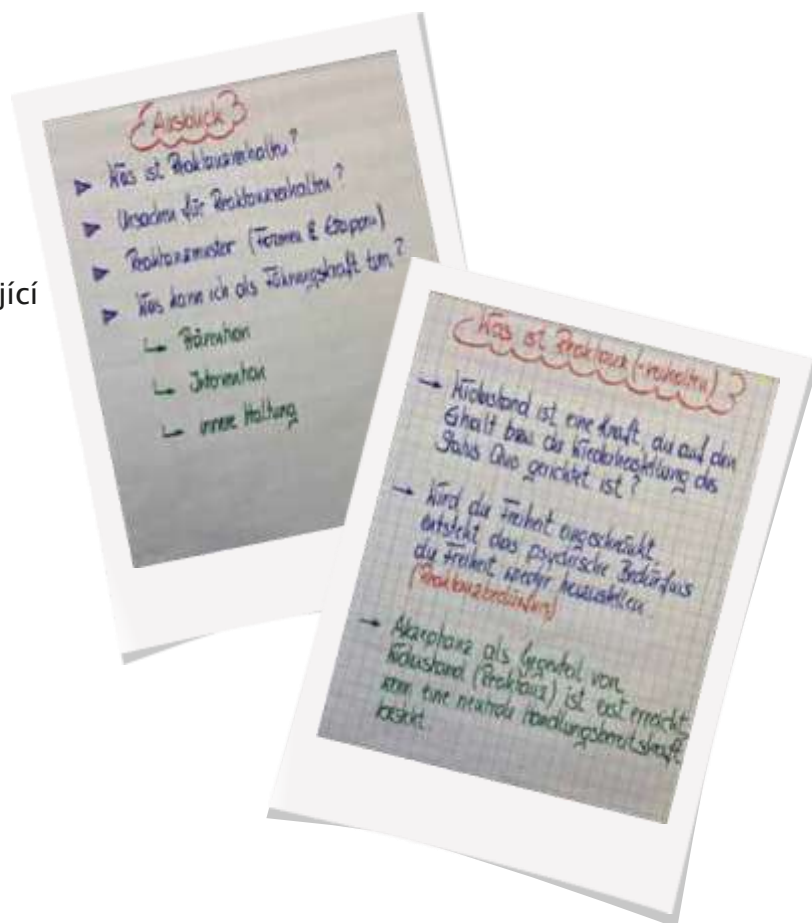 jící
Ausblick
Was ist Reaktanzverhalten?
Ursachen für Reaktanzverhalten?
Reaktanzmuster (Formen & Etappen)
Was kann ich als Führungskraft tun?
Prävention
Intervention
innere Haltung
Was ist Reaktanz (-verhalten)?
Widerstand ist eine Kraft, die auf den
Erhalt bzw. die Wiederherstellung des
Status Quo gerichtet ist?
Wird die Freiheit eingeschränkt
entsteht das psychische Bedürfnis
die Freiheit wieder herzustellen.
(Reaktanzbedürfnis)
Akzeptanz als Gegenteil von
Widerstand (Reaktanz) ist erst erreicht,
wenn eine neutrale Handlungsbereitschaft
besteht.